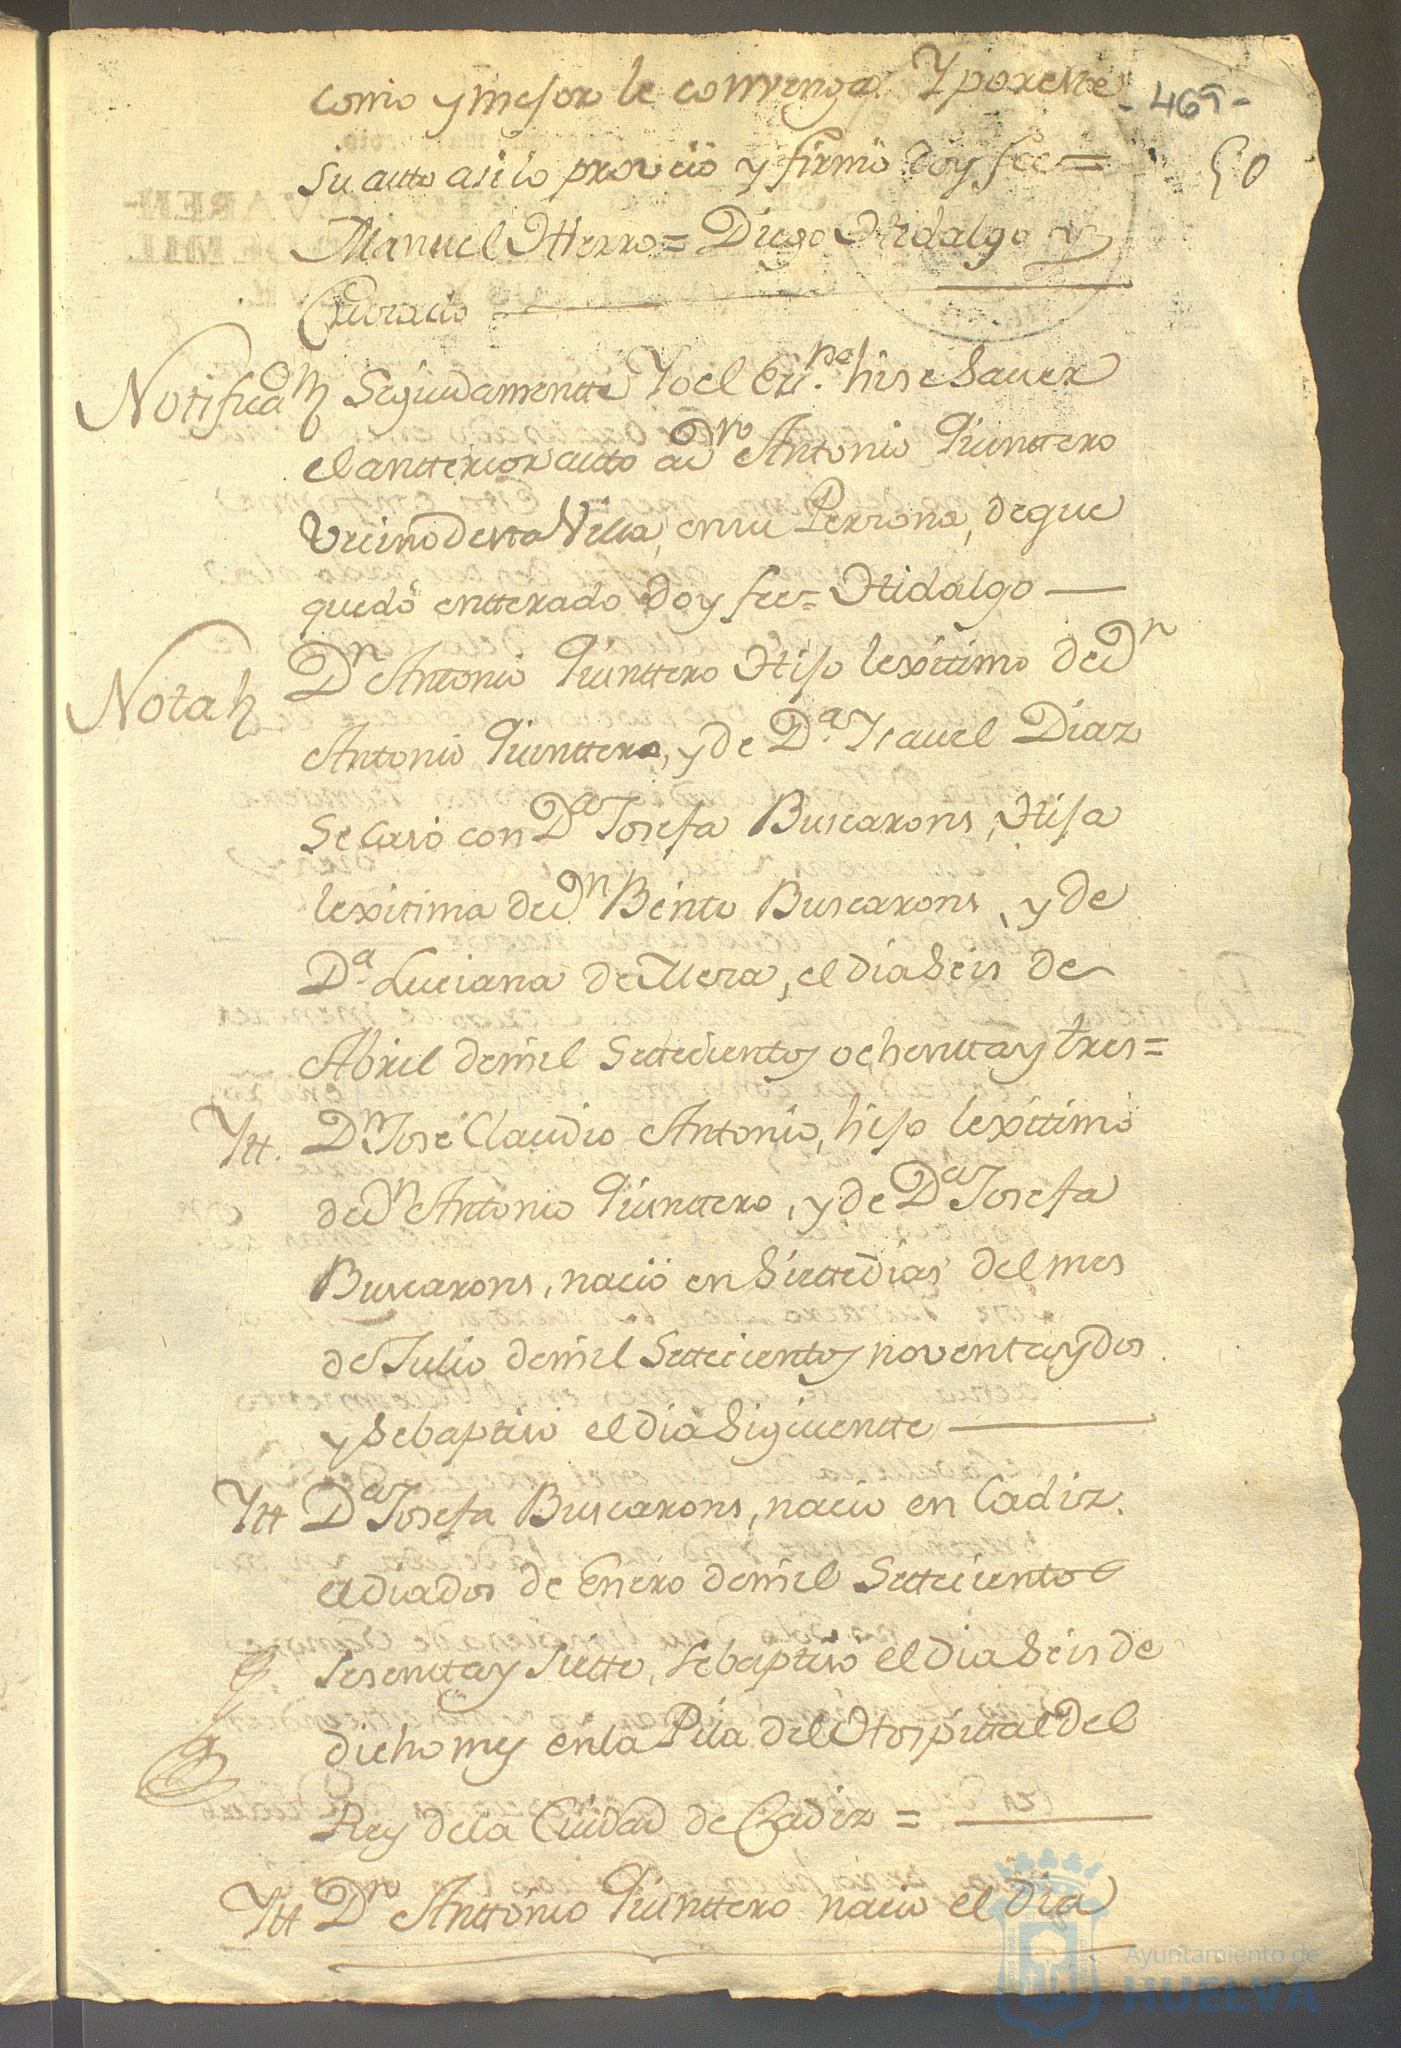 como y mejor le convenga. Y por este
- 469 -
50
su auto asi lo proveió y firmó doy fee=
Manuel Hierro= Diego Hidalgo y
Cubrado
Notificaon Seguidamentte Yo el Esno. hise saver
el antterior autto a Dn Antonio Quinttero
Vecino de esta Villa, en su Persona, de que
quedó entterado doy fee= Hidalgo
Nota Dn Antonio Quinttero Hijo lexitimo de Dn
Antonio Quinttero, y de Da. Isavel Diaz
Se Casó con Da Josefa Buscarons, Hija
lexitima de Dn Bento Buscarons, y de
Da. Luciana de Mera, el dia Seis de
Abril de mil Settecientos ochentta y tres=
Ytt. Dn José Claudio Antonio, hijo lexittimo
de Dn Antonio Quinttero, y de Da Josefa
Buscarons, nació en Siette dias del mes
de Julio de mil Settecientos noventa y dos
y se baptisó el dia Siguientte
Ytt Da Josefa Buscarons, nacio en Cadiz
el dia dos de Enero de mil Settecientos
sesentta y Siette, se baptisó el dia Seis de
dicho mes en la Pila del Hospittal del
Rey de la Ciudad de Cadiz =
Ytt Dn Anttonio Quinttero nacio el dia
Ayuntamiento de
HUELVA